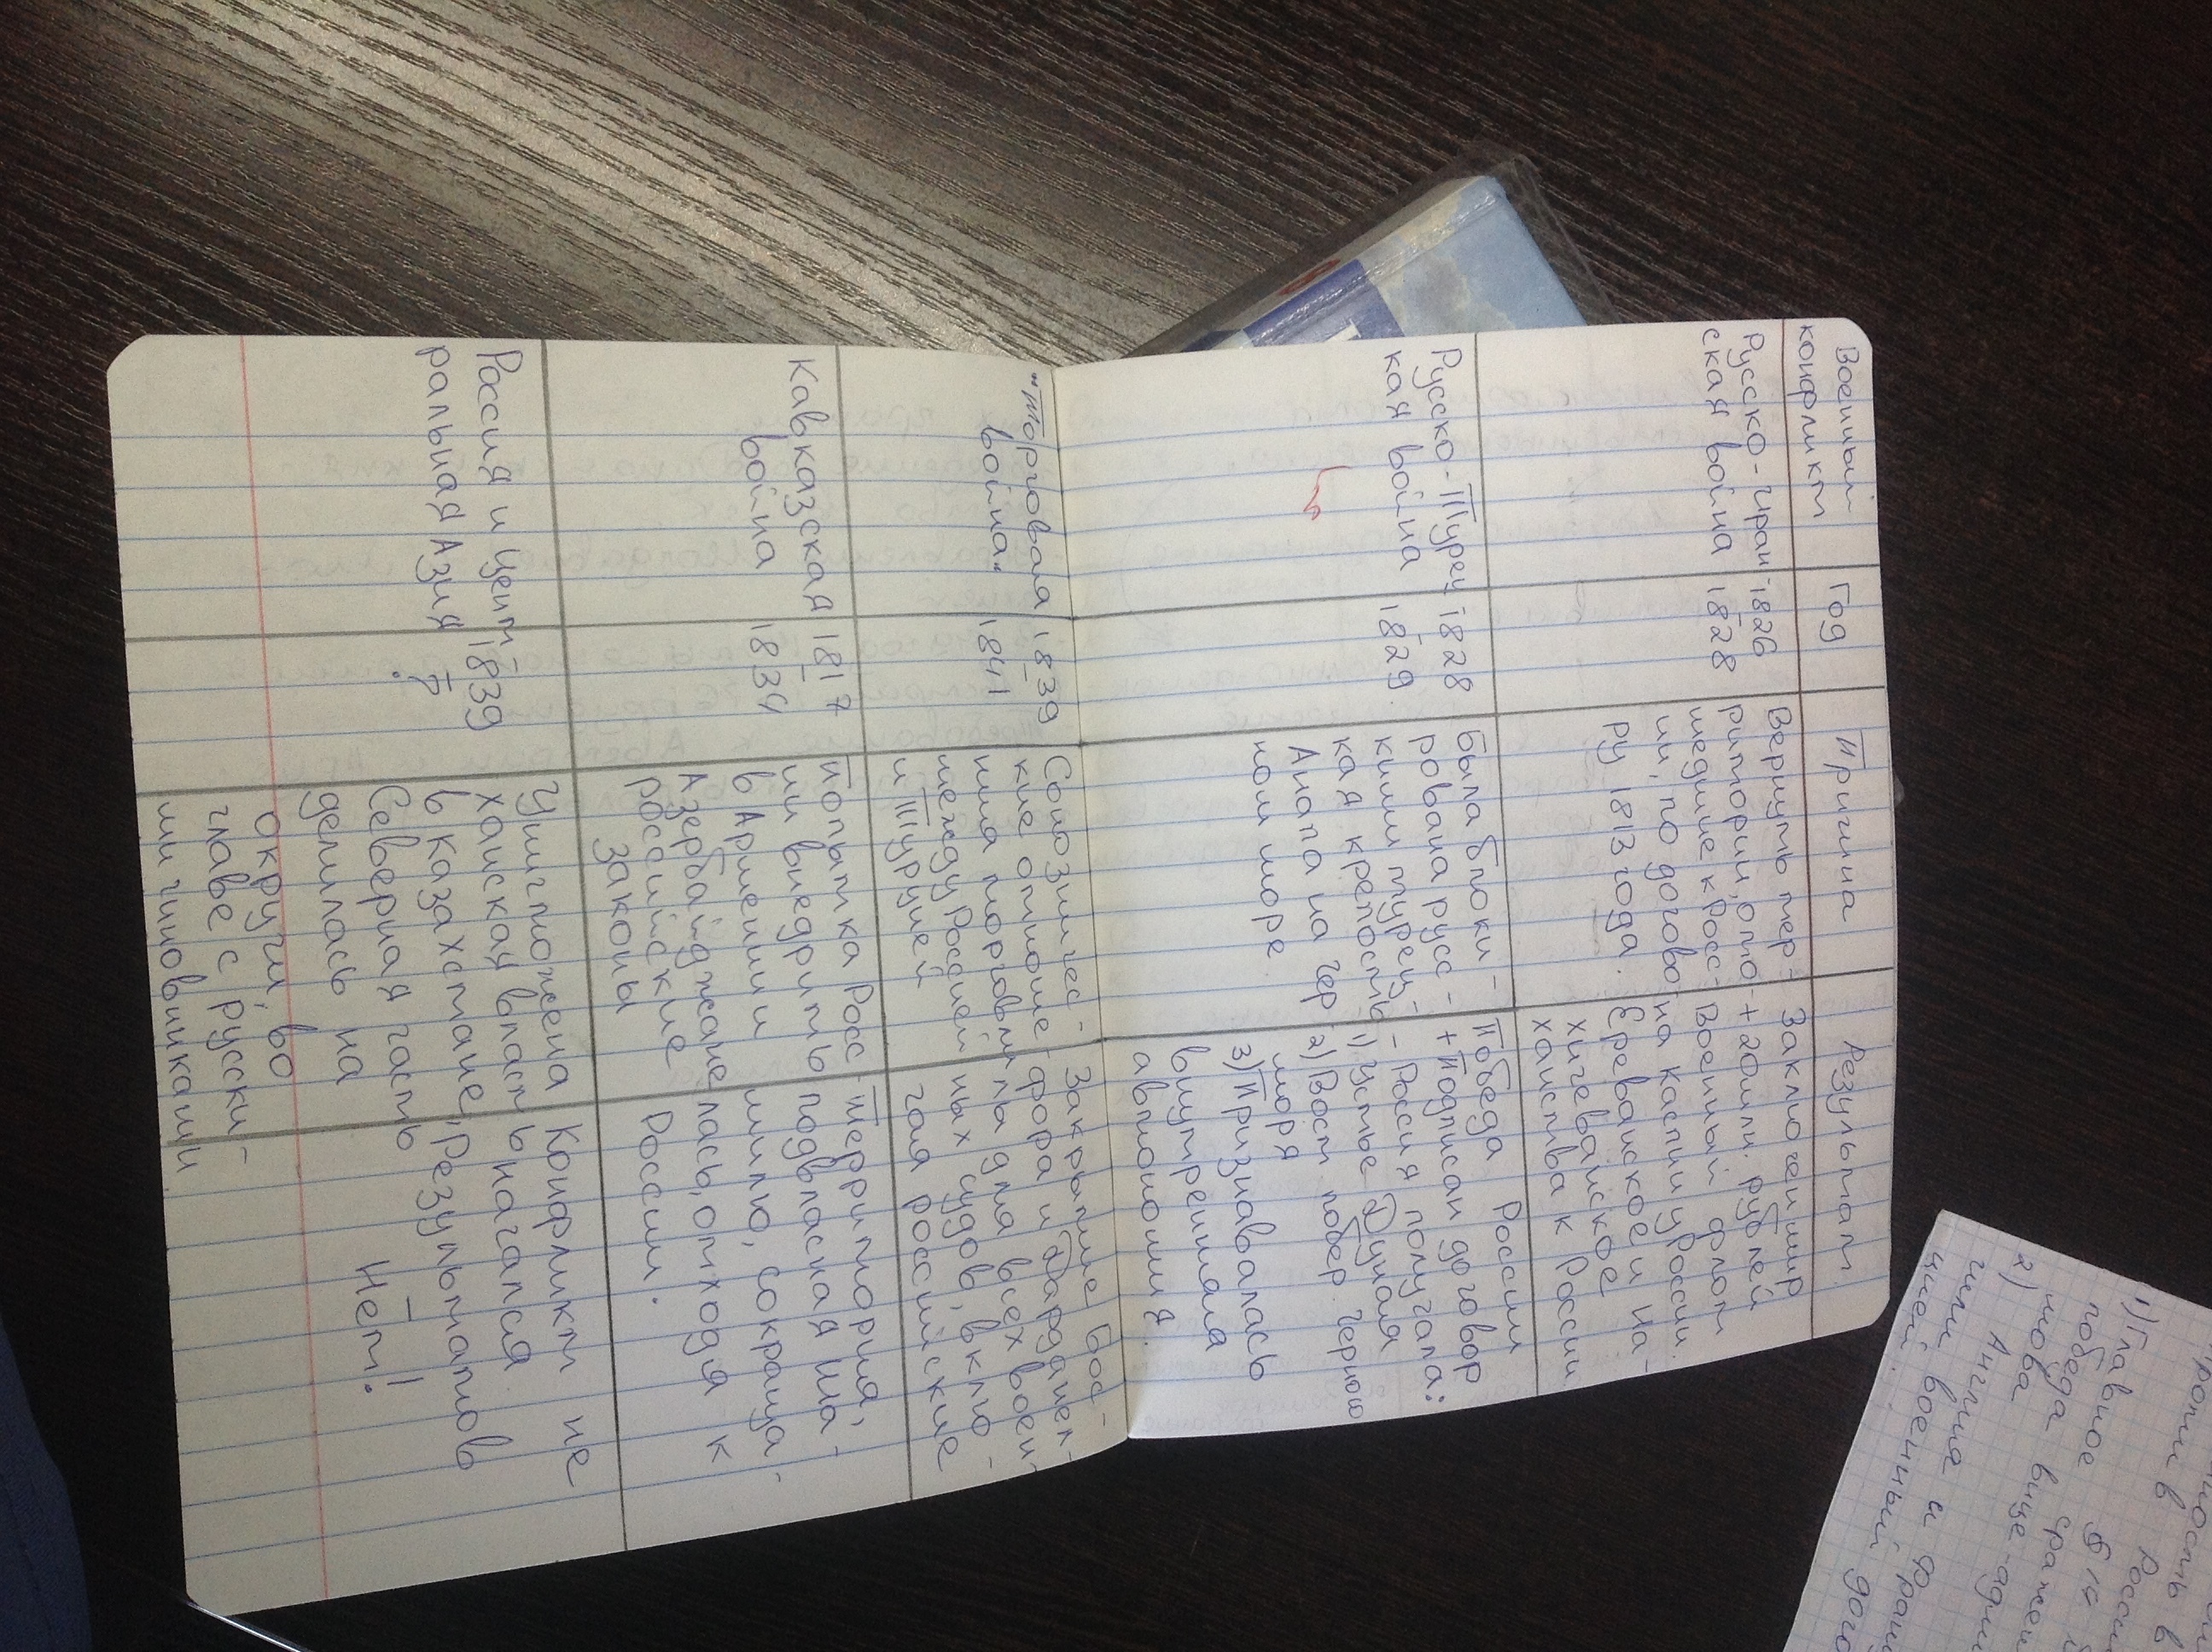 Военный конфликт
Год
Причина
Результат
Русско-Иран-
ская война
1826
–
1828
Вернуть тер-
ритории, ото-
шедшие к Росс-
ии, по догово-
ру 1813 года.
Заключен мир
+ 20 млн. рублей
Военный флот
на Каспии у России.
Ереванское и На-
хичеванское
ханства к России
Русско-Турец-
кая война
1828
–
1829.
Была блоки-
рована русс-
кими турец-
кая крепость
Анапа на Чер
ном море
Победа России
+ Подписан договор
- Россия получала:
1) Устье Дуная
2) Вост побер. Черного
моря
3) Признавалась
внутренняя
автономия.
"Торговая
война"
1839
–
1841
Союзничес-
кие отноше-
ния торговли
между Россией
и Турцией
Закрытие Бос-
фора и Дарданел-
лы для всех воен-
ных судов, вклю-
чая российские
Кавказская
война
1817
–
1834
Попытка Росс-
ии внедрить
в Армении и
Азербайджане
российские
законы
Территория,
подвласная Ша-
милю, сокраща-
лась, отходя к
России.
Россия и Цент-
ральная Азия
1839
–
?
Уничтожена
ханская власть
в Казахстане,
Северная часть
делилась на
округи, во
главе с русски-
ми чиновниками.
Конфликт не
начался
Результатов
–
Нет!
1) Главное
победа
2)
Англия и
военный